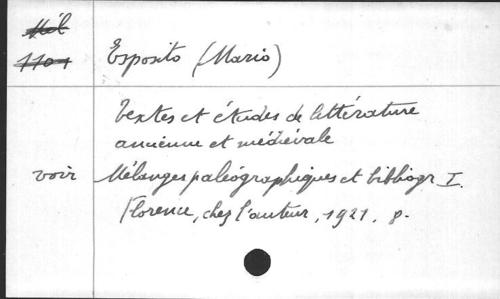 Mél
1101
Esposito (Mario)
Textes et études de littérature
ancienne et médiévale
voir Mélanges paléographiques et bibliogr I.
Florence, chez l'auteur, 1921. 8.